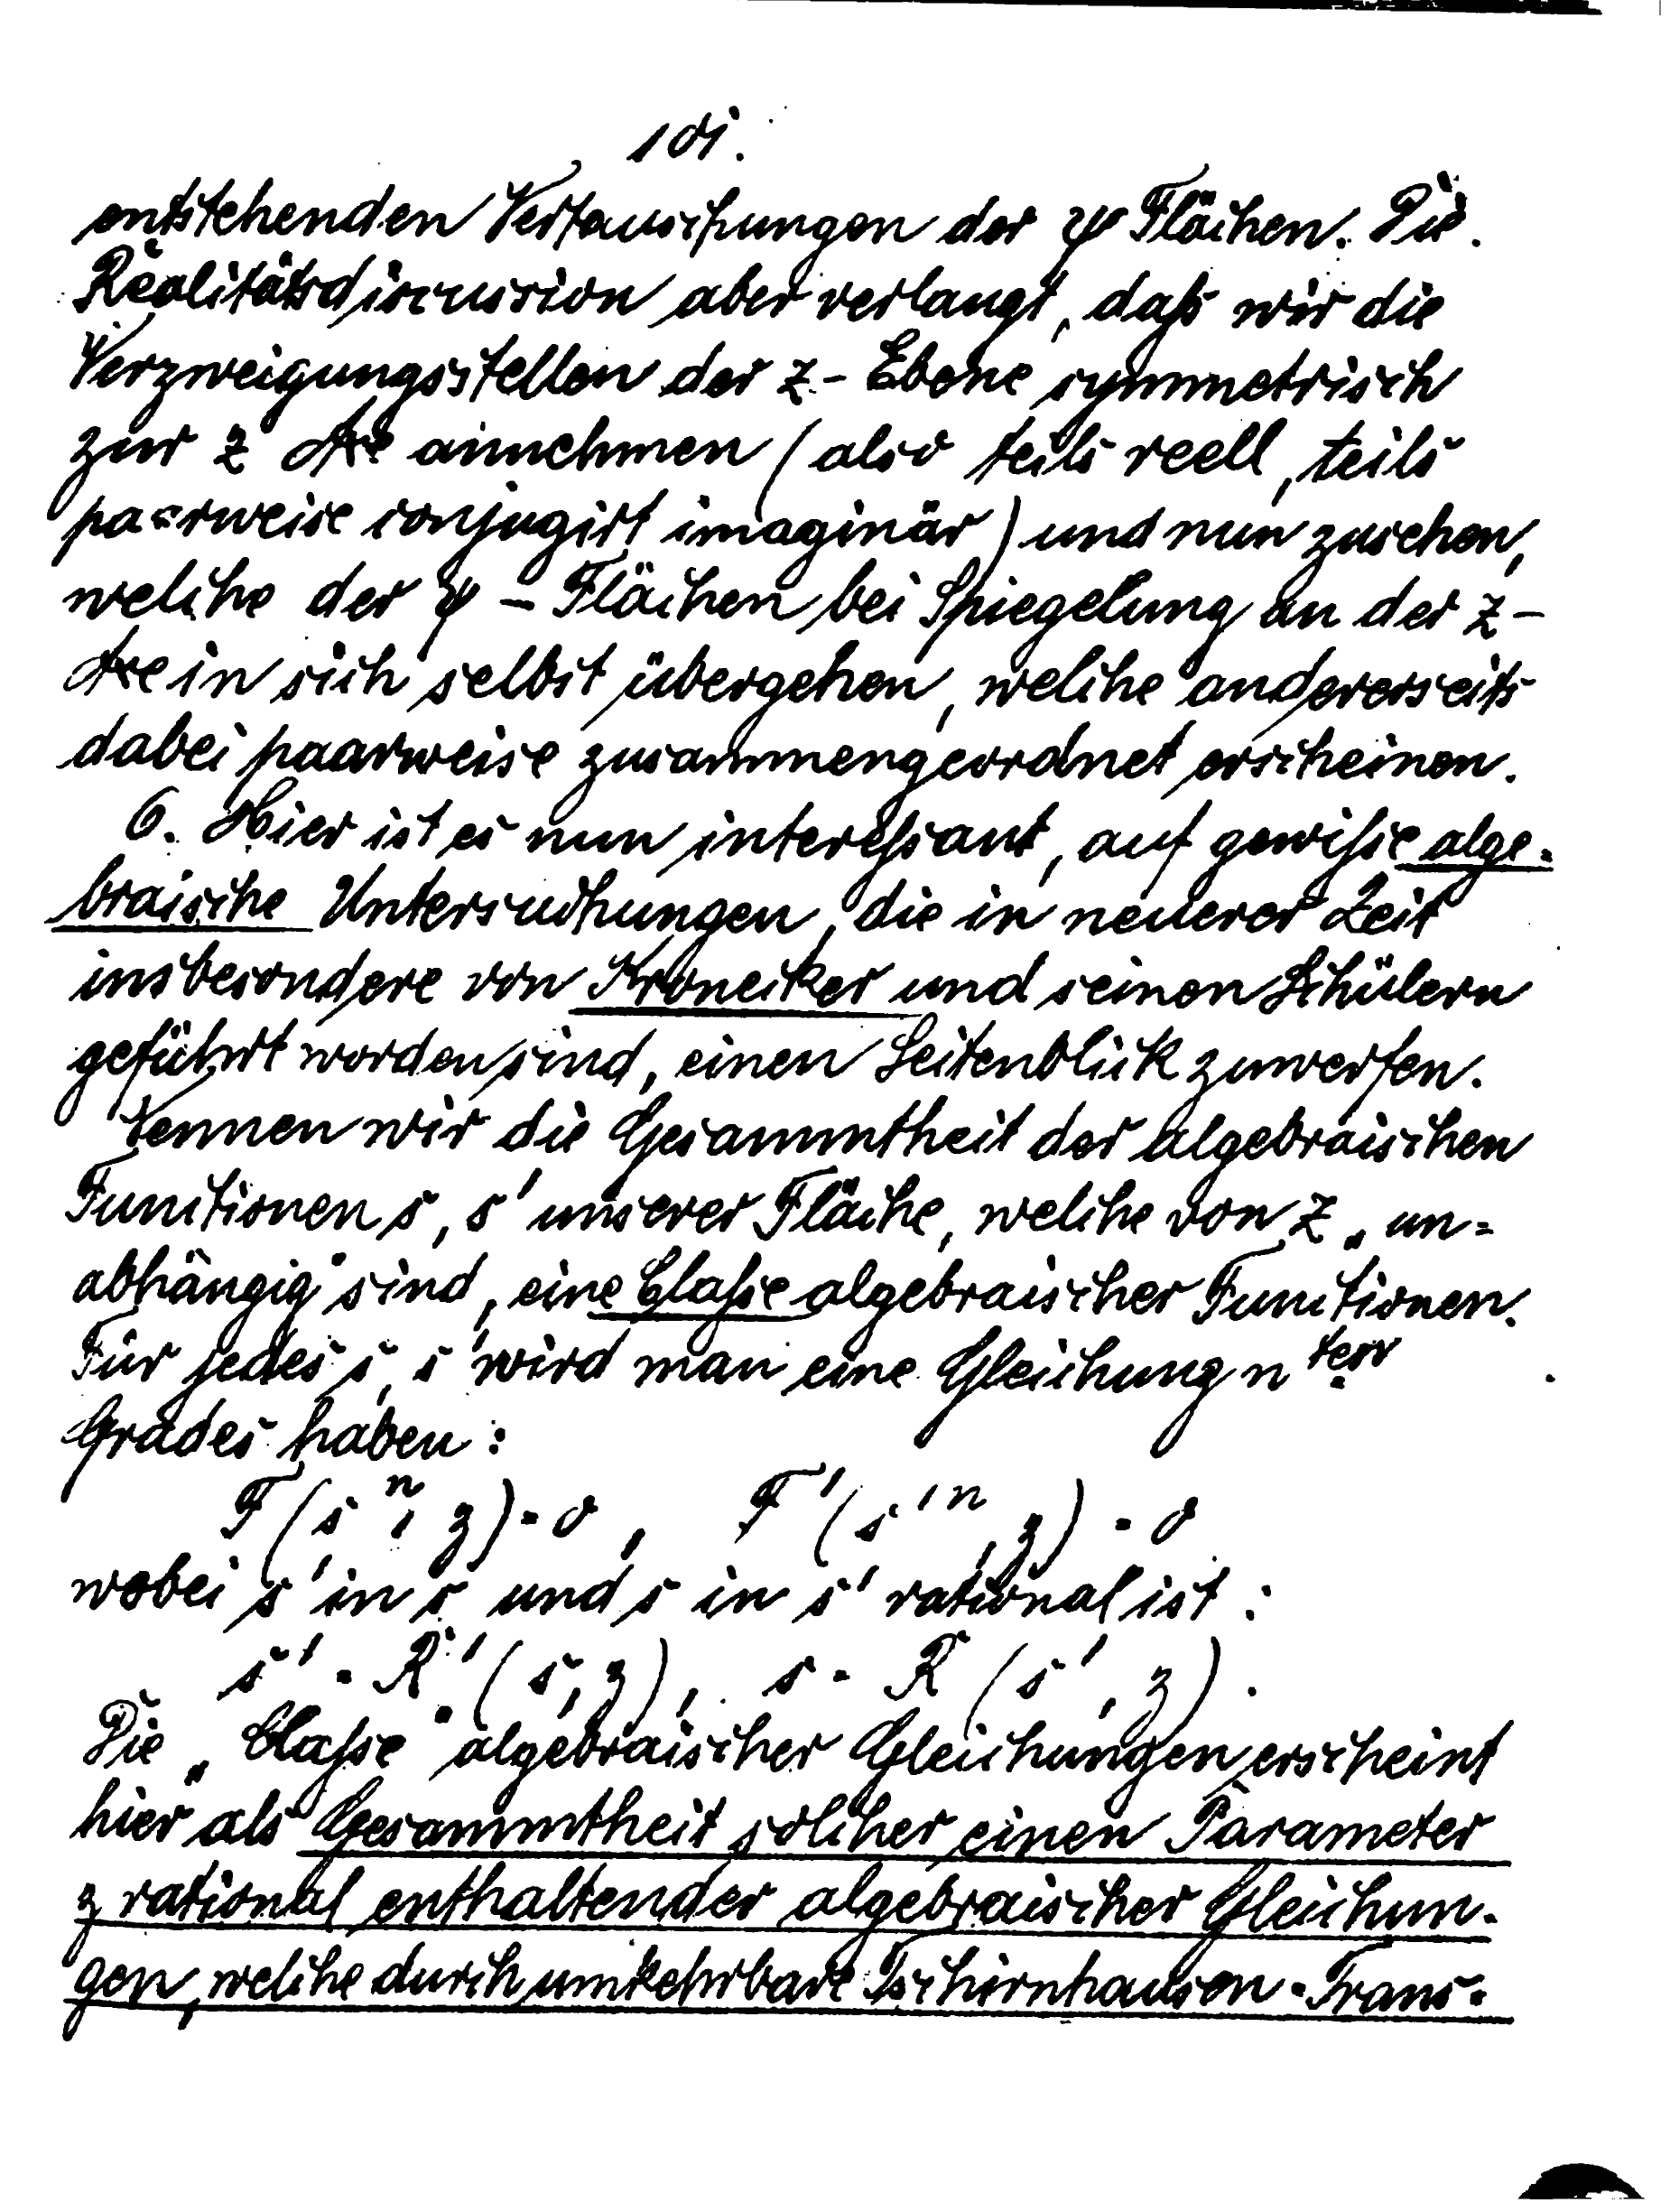 101.
entstehenden Vertauschungen der ψ Flächen. Die
Realitätsdiscussion aber verlangt, daß wir die
Verzweigungsstellen der z - Ebene symmetrisch
zur z Axe annehmen (also teils reell, teils
paarweise conjugirt imaginär) und nun zusehen,
welche der ψ - Flächen bei Spiegelung an der z -
Axe in sich selbst übergehen, welche andererseits
dabei paarweise zusammengeordnet erscheinen.
6. Hier ist es nun interessant, auf gewisse alge-
braische Untersuchungen, die in neuerer Zeit
insbesondere von Kronecker und seinen Schülern
geführt worden sind, einen Seitenblick zuwerfen.
Nennen wir die Gesammtheit der algebraischen
Functionen s, s' unserer Fläche, welche von z „un-
abhängig" sind, eine Classe algebraischer Functionen.
Für jedes s, s' wird man eine Gleichung n ten
Grades haben:
F(s^n, z) = 0, F'(s'^n, z) = 0
wobei s' in s und s in s' rational ist:
s' = R'(s, z), s = R(s', z).
Die „Classe" algebraischer Gleichungen erscheint
hier als Gesammtheit solcher einen Parameter
z rational enthaltender algebraischer Gleichun-
gen, welche durch umkehrbare Tschirnhausen-Trans-